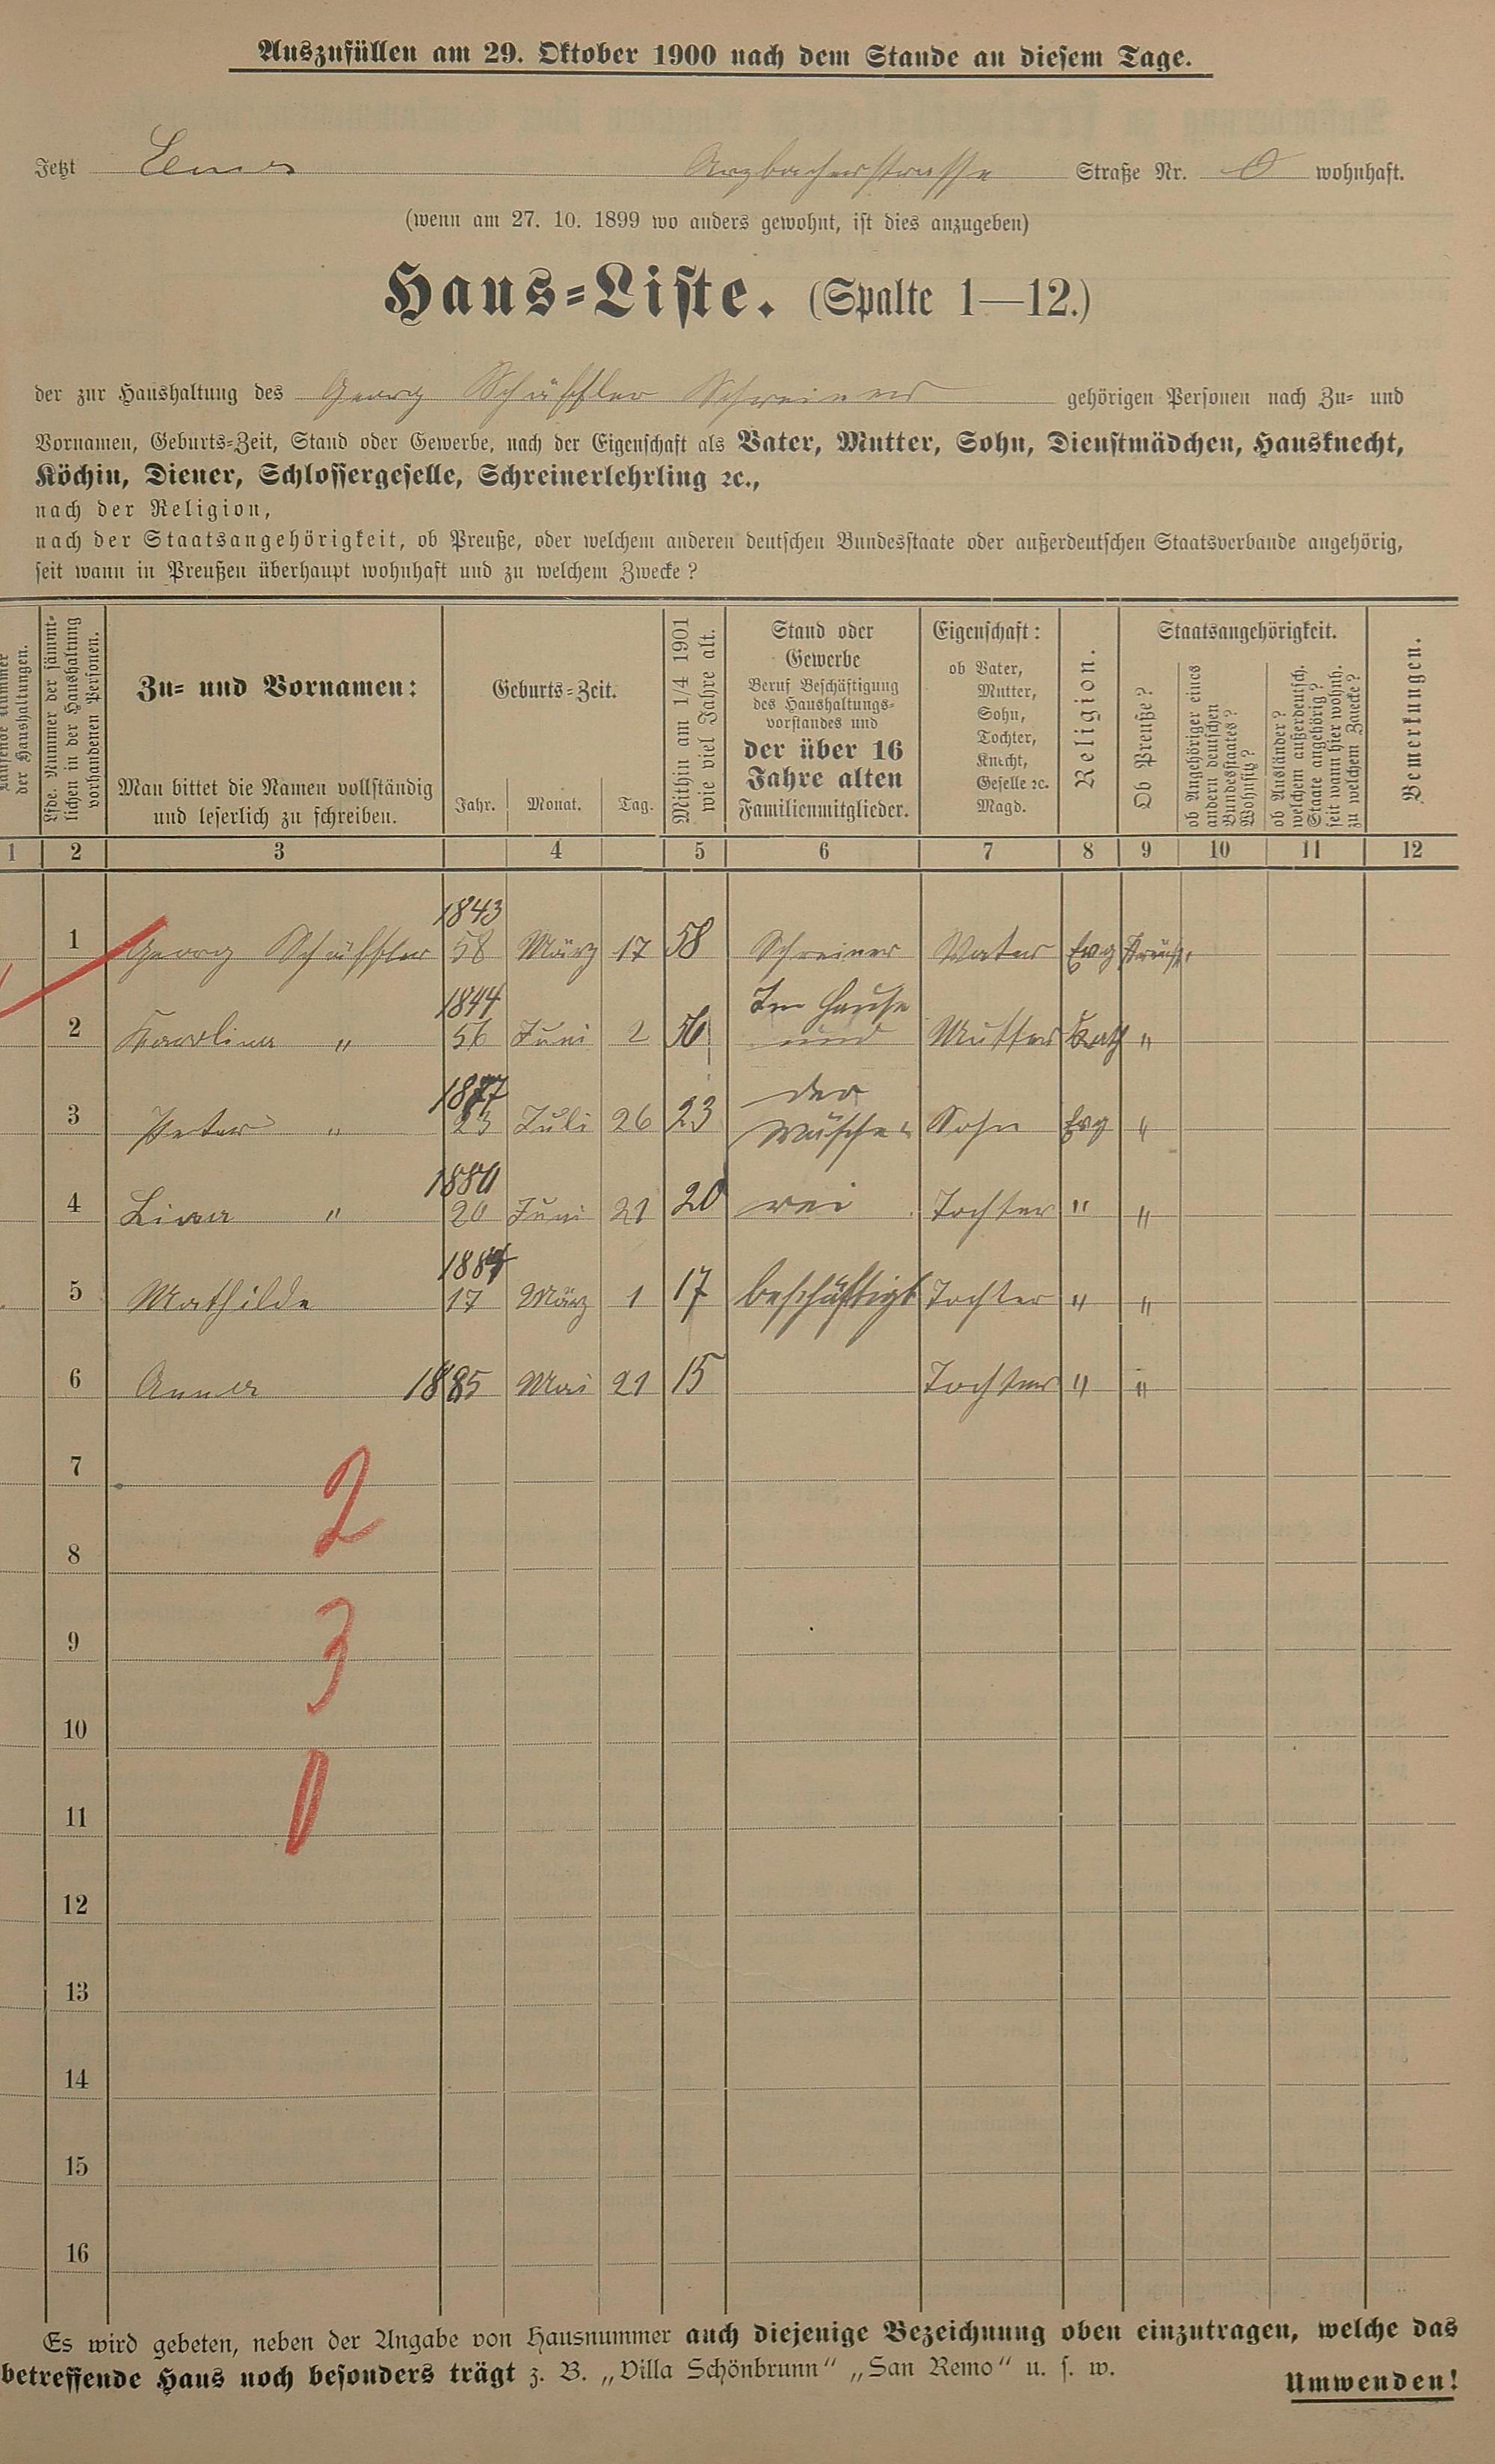 Auszufüllen am 29. Oktober 1900 nach dem Stande an diesem Tage.
Jetzt Ems Arzbacherstrasse Straße Nr. 0 wohnhaft.
(wenn am 27. 10. 1899 wo anders gewohnt, ist dies anzugeben)
Haus-Liste. (Spalte 1—12.)
der zur Haushaltung des Georg Schäffler Schreiner gehörigen Personen nach Zu- und
Vornamen, Geburts-Zeit, Stand oder Gewerbe, nach der Eigenschaft als Vater, Mutter, Sohn, Dienstmädchen, Hausknecht,
Köchin, Diener, Schlossergeselle, Schreinerlehrling ꝛc.,
nach der Religion,
nach der Staatsangehörigkeit, ob Preuße, oder welchem anderen deutschen Bundesstaate oder außerdeutschen Staatsverbande angehörig,
seit wann in Preußen überhaupt wohnhaft und zu welchem Zwecke?
Laufende Nummer
der Haushaltungen.
Lfde. Nummer der sämmt-
lichen in der Haushaltung
vorhandenen Personen.
Zu- und Vornamen:
Man bittet die Namen vollständig
und leserlich zu schreiben.
Geburts-Zeit.
Jahr. Monat. Tag.
Mithin am 1/4 1901
wie viel Jahre alt.
Stand oder
Gewerbe
Beruf Beschäftigung
des Haushaltungs-
vorstandes und
der über 16
Jahre alten
Familienmitglieder.
Eigenschaft:
ob Vater,
Mutter,
Sohn,
Tochter,
Knecht,
Geselle ꝛc.
Magd.
Religion.
Staatsangehörigkeit.
Ob Preuße?
ob Angehöriger eines
andern deutschen
Bundesstaates?
Wohnsitz?
ob Ausländer?
welchem außerdeutsch.
Staate angehörig?
seit wann hier wohnh.
zu welchem Zwecke?
Bemerkungen.
1 2 3 4 5 6 7 8 9 10 11 12
1843
1 Georg Schäffler 58 März 17 58 Schreiner Vater Evg Preuß.
1844 Im Hause
2 Karolina " 56 Juni 2 56 und Mutter Kath "
1877 der
3 Peter " 23 Juli 26 23 Wäsche Sohn Evg "
1880
4 Lina " 20 Juni 21 20 rei Tochter " "
1884
5 Mathilde 17 März 1 17 beschäftigt Tochter " "
6 Anna 1885 Mai 21 15 Tochter " "
7
2
8
9
3
10
11
0
12
13
14
15
16
Es wird gebeten, neben der Angabe von Hausnummer auch diejenige Bezeichnung oben einzutragen, welche das
betreffende Haus noch besonders trägt z. B. „Villa Schönbrunn“ „San Remo“ u. s. w.
Umwenden!